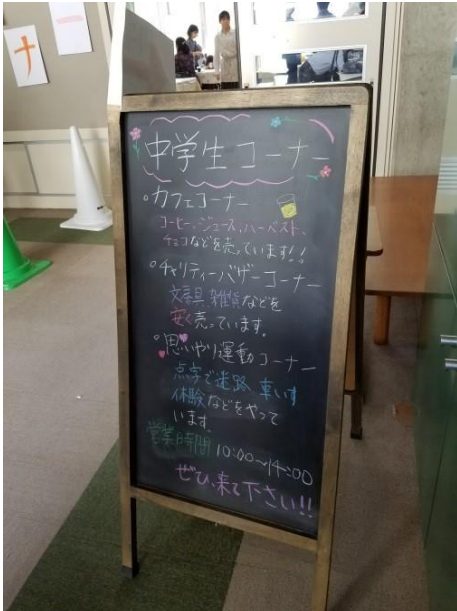 ナ
中学生コーナー
カフェコーナー
コーヒー、ジュース、ハーベスト、
チョコなどを売っています!!
チャリティーバザーコーナー
文房具、雑貨などを
安く売っています。
思いやり運動コーナー
点字で迷路、車いす
体験などをやって
います。
営業時間 10:00~14:00
ぜひ、来て下さい!!